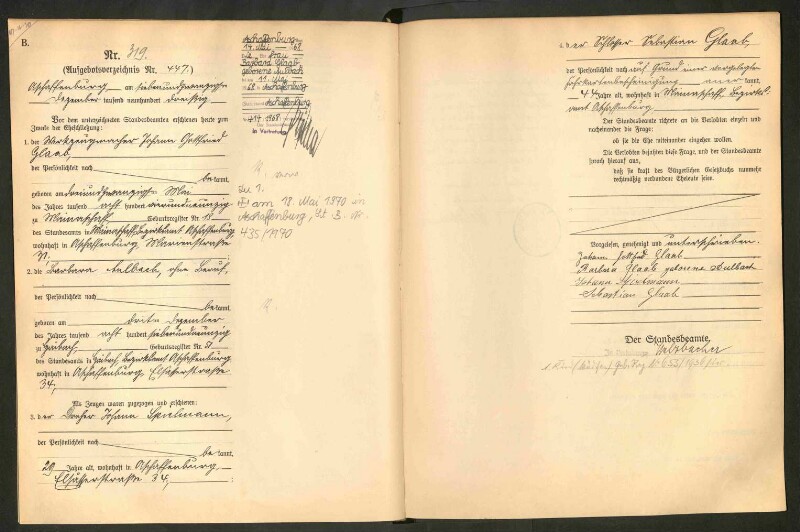 B.
Nr. 319.
(Aufgebotsverzeichnis Nr. 447.)
Aschaffenburg am siebenundzwanzigsten
Dezember tausend neunhundert dreißig
Vor dem unterzeichneten Standesbeamten erschienen heute zum
Zwecke der Eheschließung:
1. der Werkzeugmacher Johann Gottfried
Glaab,
der Persönlichkeit nach
be kannt,
geboren am dreiundzwanzigsten Mai
des Jahres tausend acht hundert
zu Mainaschaff Geburtsregister Nr.
des Standesamts in Mainaschaff Bezirksamt Aschaffenburg
wohnhaft in Aschaffenburg,
31.
2. die Barbara Aulbach, ohne Beruf,
der Persönlichkeit nach
be kannt,
geboren am dritten Dezember
des Jahres tausend acht hundert siebenundneunzig
zu Haibach, Geburtsregister Nr.
des Standesamts in Haibach, Bezirksamt Aschaffenburg
wohnhaft in Aschaffenburg, Elsässerstraße
34,
Als Zeugen waren zugezogen und erschienen:
3. der Dreher Johann Spielmann,
der Persönlichkeit nach
be kannt,
29 Jahre alt, wohnhaft in Aschaffenburg
Elsässerstraße 34,
Aschaffenburg
14. Mai 68
Frau
Barbara Glaab
geborene Aulbach
11. Mai
68 Aschaffenburg
Aschaffenburg
1968
In Vertretung
Zu 1.
am 18. Mai 1970 in
Aschaffenburg, St. B. Nr.
435/1970
4. der Schlosser Sebastian Glaab,
der Persönlichkeit nach auf Grund einer vorgelegten
kannt,
44 Jahre alt, wohnhaft in Mainaschaff, Bezirks-
amt Aschaffenburg.
Der Standesbeamte richtete an die Verlobten einzeln und
nacheinander die Frage:
ob sie die Ehe miteinander eingehen wollen.
Die Verlobten bejahten diese Frage, und der Standesbeamte
sprach hierauf aus,
daß sie kraft des Bürgerlichen Gesetzbuchs nunmehr
rechtmäßig verbundene Eheleute seien.
Vorgelesen, genehmigt und unterschrieben.
Johann Gottfried Glaab
Barbara Glaab geborene Aulbach
Johann Spielmann
Sebastian Glaab
Der Standesbeamte.